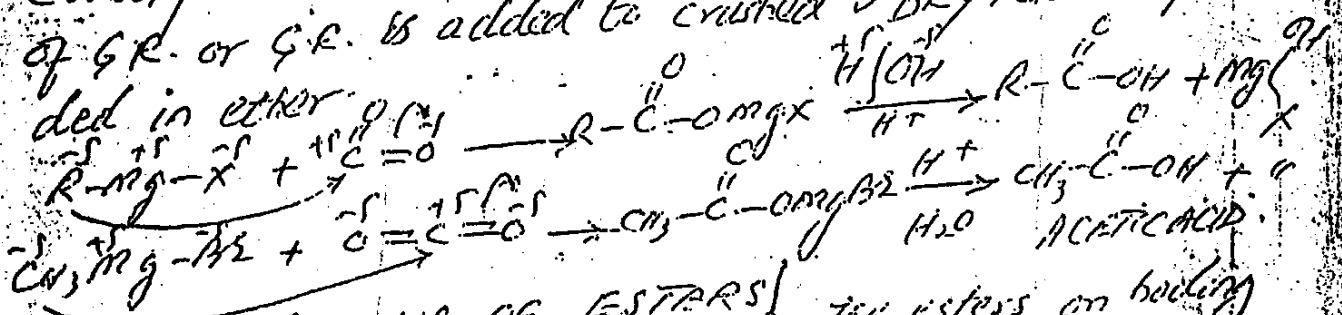 of G.R. or G.R. is added to crushed
ded in ether.
R-Mg-X + O=C=O → R-C(=O)-OMgX —H/OH, H+→ R-C(=O)-OH + Mg(OH)X
CH3Mg-Br + O=C=O → CH3-C(=O)-OMgBr —H+, H2O→ CH3-C(=O)-OH + "
ACETIC ACID.
OF ESTERS esters on boiling